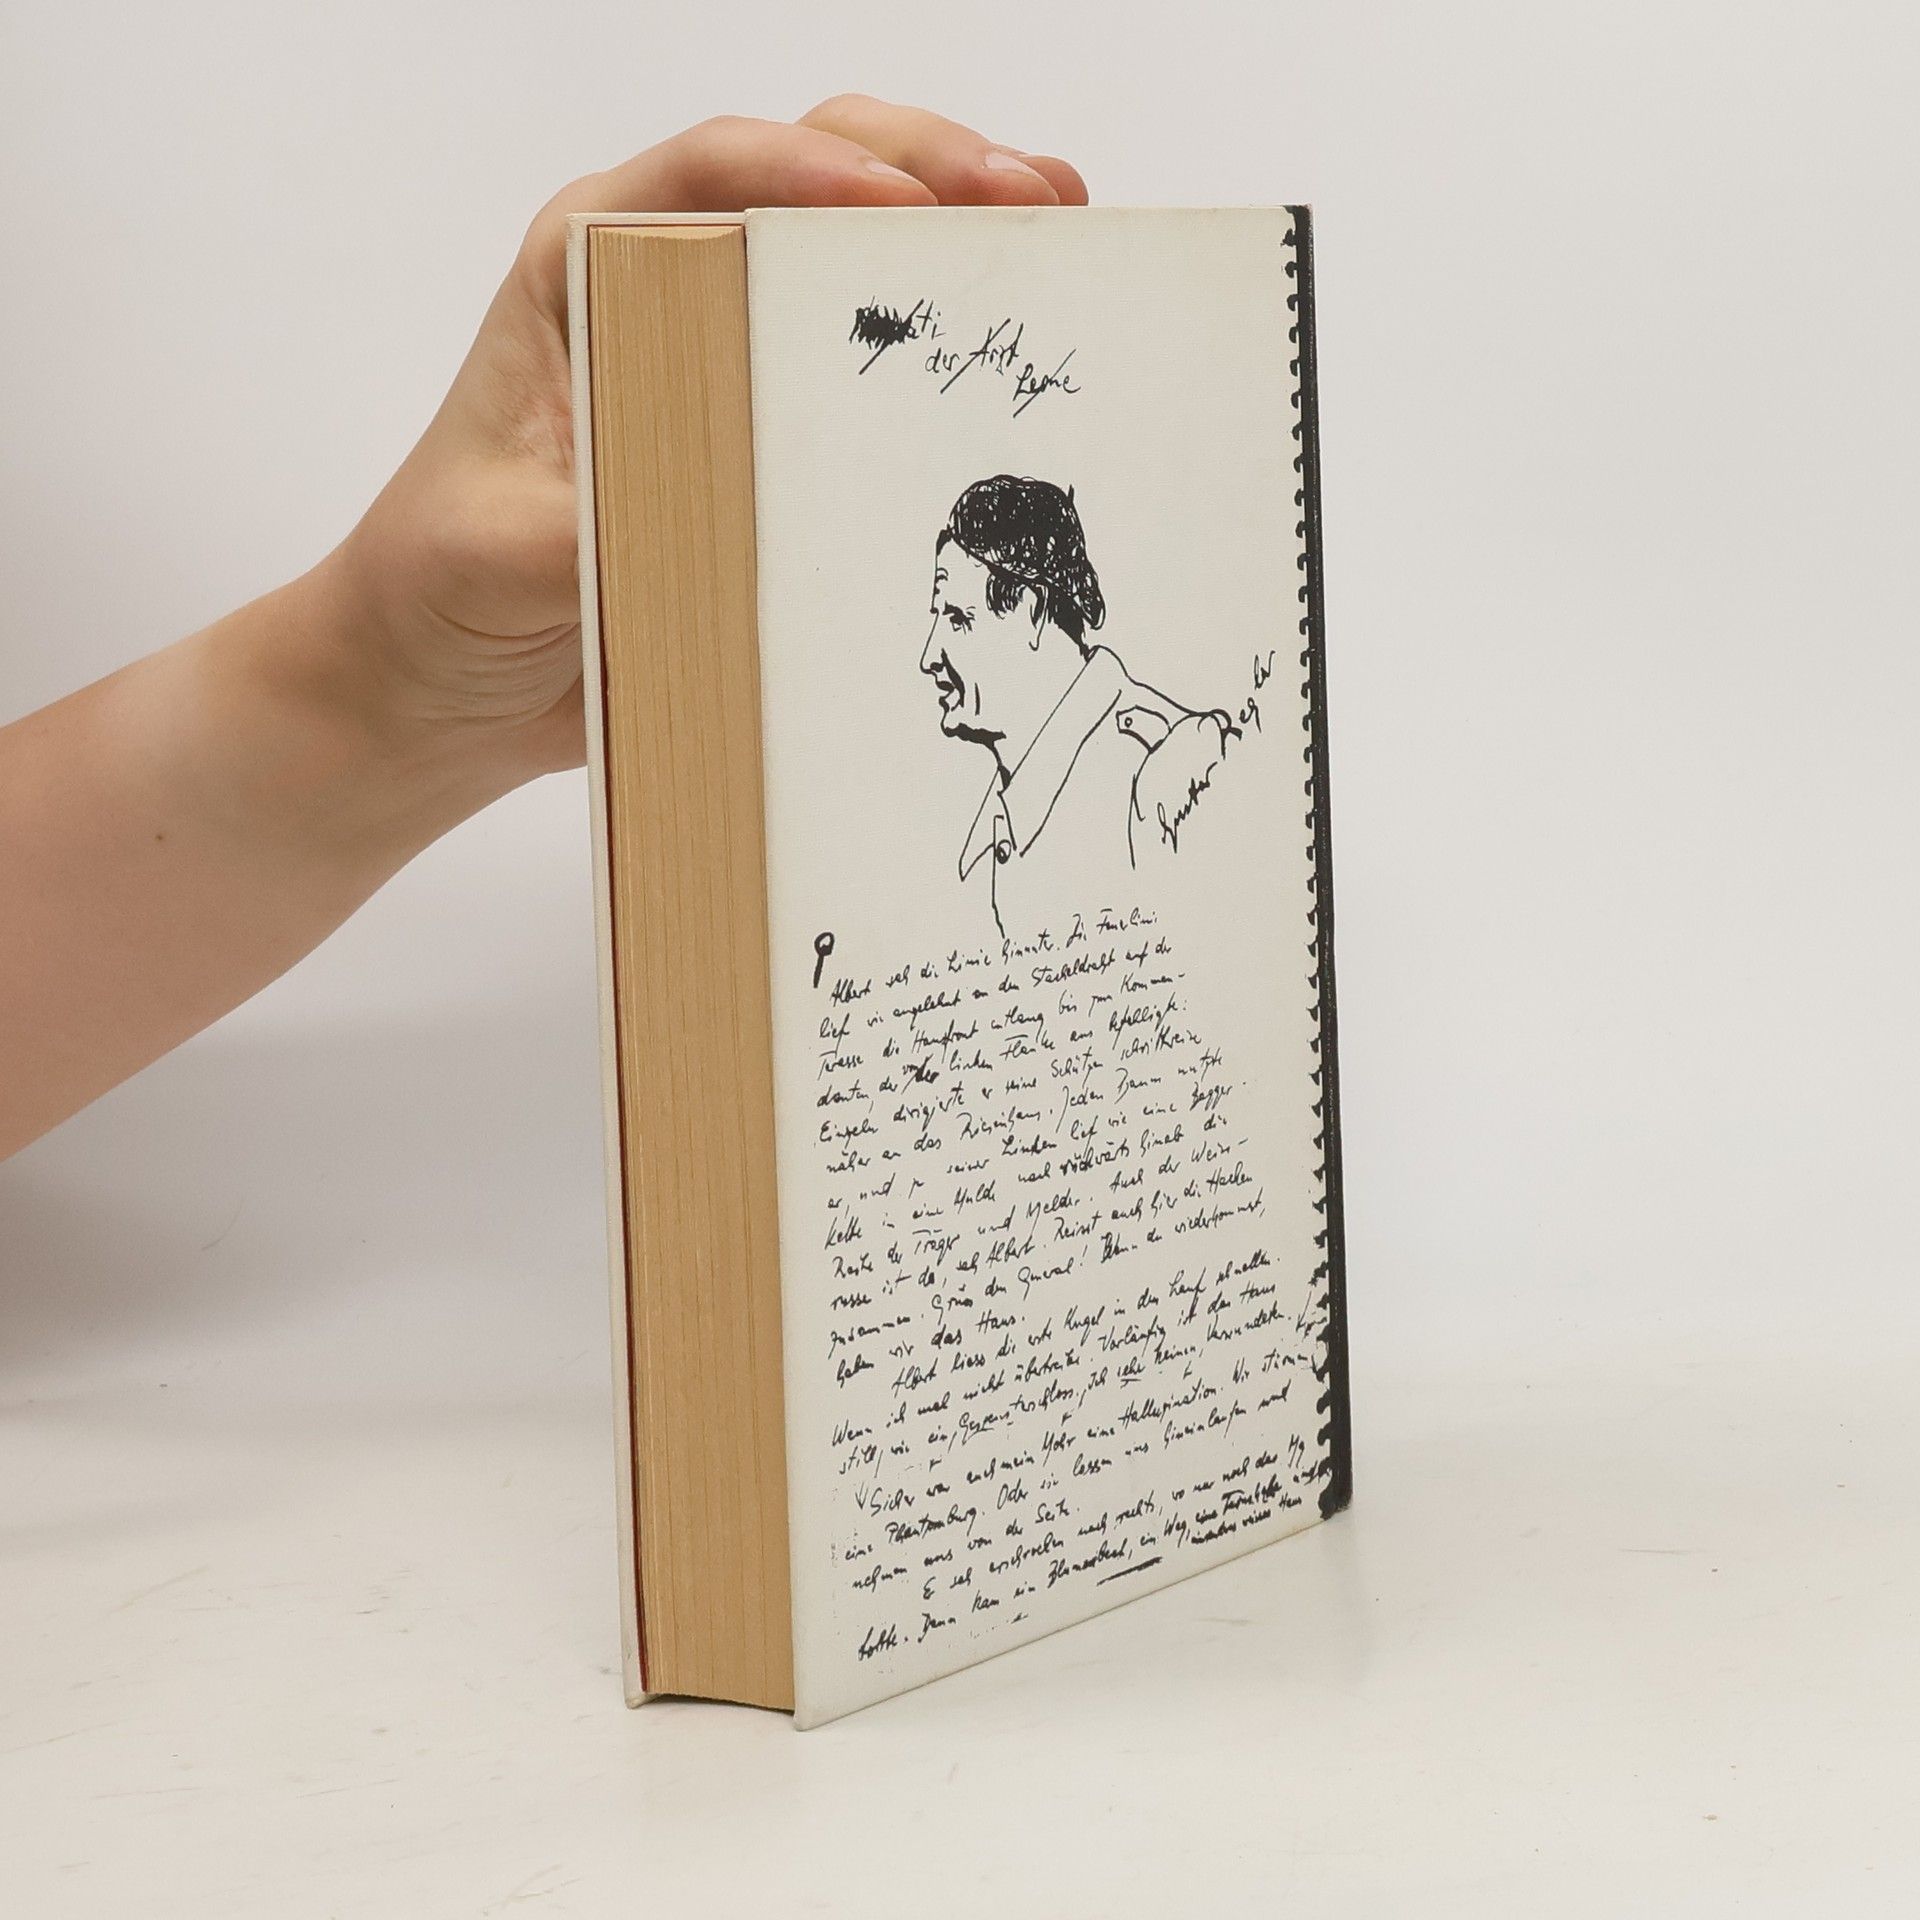 der Arzt
Lesne
Gustav Regler
Albert sah die Linie hinunter. Die Feuerlinie
lief wie angelehnt an den Stacheldraht auf der
Terasse die Hausfront entlang bis zum Kommen-
danten, der von der linken Flanke aus befehligte:
Einzeln dirigierte er seine Schützen schrittweise
näher an das Riesenhaus. Jeden Baum nutzte
er, und zu seiner Linken lief wie eine Bagger-
kette in eine Mulde nach rückwärts hinab die
Reihe der Träger und Melder. Auch der Weiss-
russe ist da, sah Albert. Reisst auch hier die Hacken
zusammen. Grüss den General! Wenn du wiederkommst,
haben wir das Haus.
Albert liess die erste Kugel in den Lauf schnellen.
Wenn ich mal nicht übertreibe. Vorläufig ist das Haus
still, wie ein Gespensterschloss. Ich sehe keinen Verwundeten.
Sicher war auch mein Mohr eine Halluzination. Wir stürmen
eine Phantomburg. Oder sie lassen uns hineinlaufen und
nehmen uns von der Seite.
E sah erschrocken nach rechts, wo nur noch das Mg
Dann kam ein Blumenbeet, ein Weg, eine